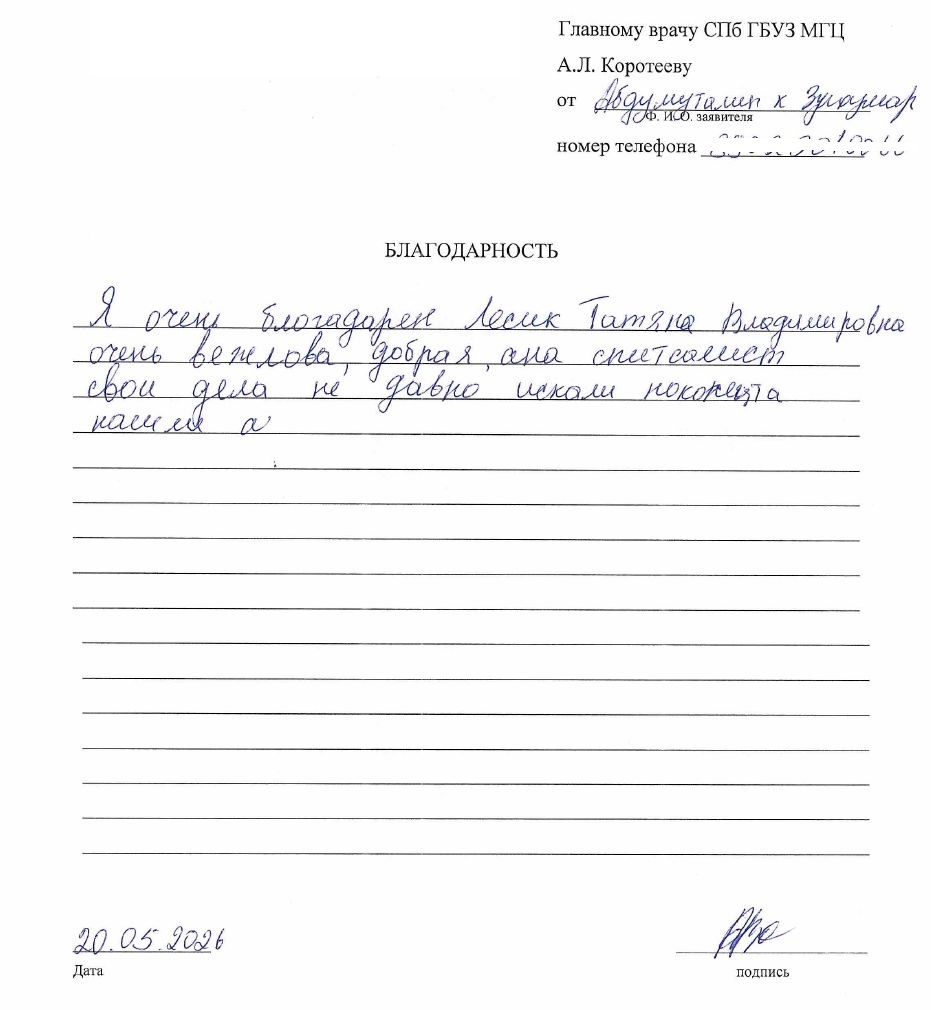 Главному врачу СПб ГБУЗ МГЦ
А.Л. Коротееву
от Абдумуталип к
Ф. И.О. заявителя
номер телефона
БЛАГОДАРНОСТЬ
Я очень благадарен Лесик Татяна Владимировна
очень вежлова, добрая, ана спитсалист
свои дела не давно искали
нашли а
20.05.2026
Дата
подпись